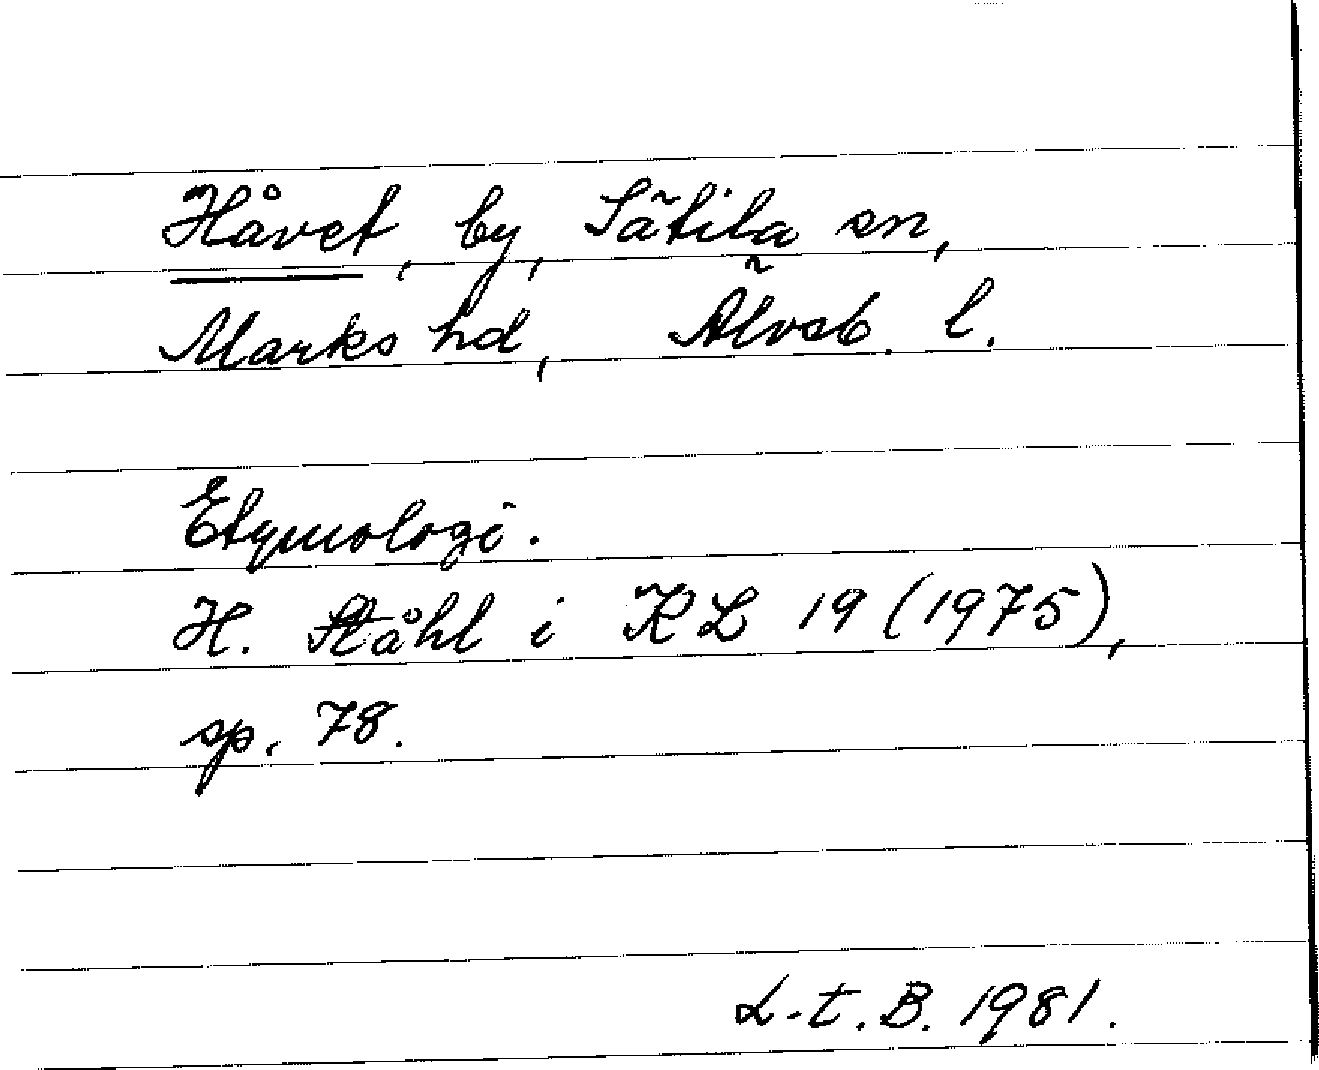 Håvet, by, Sätila sn,
Marks hd, Älvsb. l.
Etymologi.
H. Ståhl i KL 19 (1975),
sp. 78.
L-t. B. 1981.